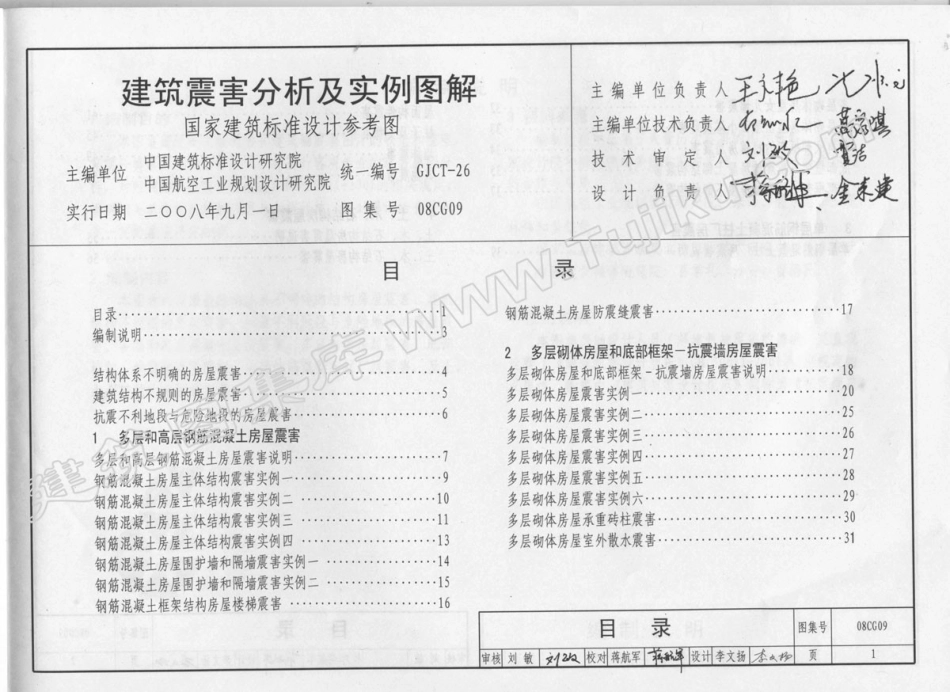 建筑震害分析及实例图解
国家建筑标准设计参考图
主编单位 中国建筑标准设计研究院
中国航空工业规划设计研究院
统一编号 GJCT-26
实行日期 二〇〇八年九月一日 图集号 08CG09
主编单位负责人
主编单位技术负责人
技术审定人 刘敏
设计负责人
目 录
目录 1
编制说明 3
结构体系不明确的房屋震害 4
建筑结构不规则的房屋震害 5
抗震不利地段与危险地段的房屋震害 6
1 多层和高层钢筋混凝土房屋震害
多层和高层钢筋混凝土房屋震害说明 7
钢筋混凝土房屋主体结构震害实例一 9
钢筋混凝土房屋主体结构震害实例二 10
钢筋混凝土房屋主体结构震害实例三 11
钢筋混凝土房屋主体结构震害实例四 13
钢筋混凝土房屋围护墙和隔墙震害实例一 14
钢筋混凝土房屋围护墙和隔墙震害实例二 15
钢筋混凝土框架结构房屋楼梯震害 16
钢筋混凝土房屋防震缝震害 17
2 多层砌体房屋和底部框架-抗震墙房屋震害
多层砌体房屋和底部框架-抗震墙房屋震害说明 18
多层砌体房屋震害实例一 20
多层砌体房屋震害实例二 25
多层砌体房屋震害实例三 26
多层砌体房屋震害实例四 27
多层砌体房屋震害实例五 28
多层砌体房屋震害实例六 29
多层砌体房屋承重砖柱震害 30
多层砌体房屋室外散水震害 31
目 录 图集号 08CG09
审核 刘敏 刘敏 校对 蒋航军 蒋航军 设计 李文扬 李文扬 页 1
建筑图集库 www.Tujiku.com